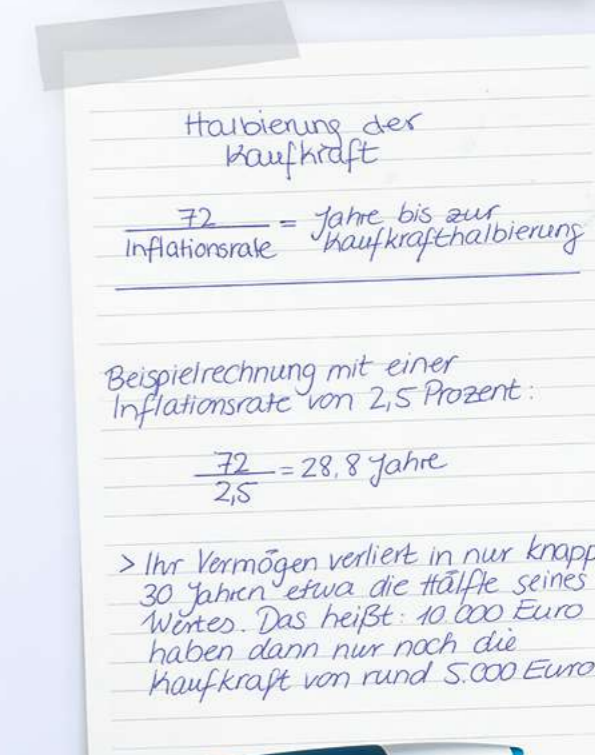 Halbierung der
Kaufkraft
72
Inflationsrate
= Jahre bis zur
Kaufkrafthalbierung
Beispielrechnung mit einer
Inflationsrate von 2,5 Prozent:
72
2,5
= 28,8 Jahre
> Ihr Vermögen verliert in nur knapp
30 Jahren etwa die Hälfte seines
Wertes. Das heißt: 10.000 Euro
haben dann nur noch die
Kaufkraft von rund 5.000 Euro